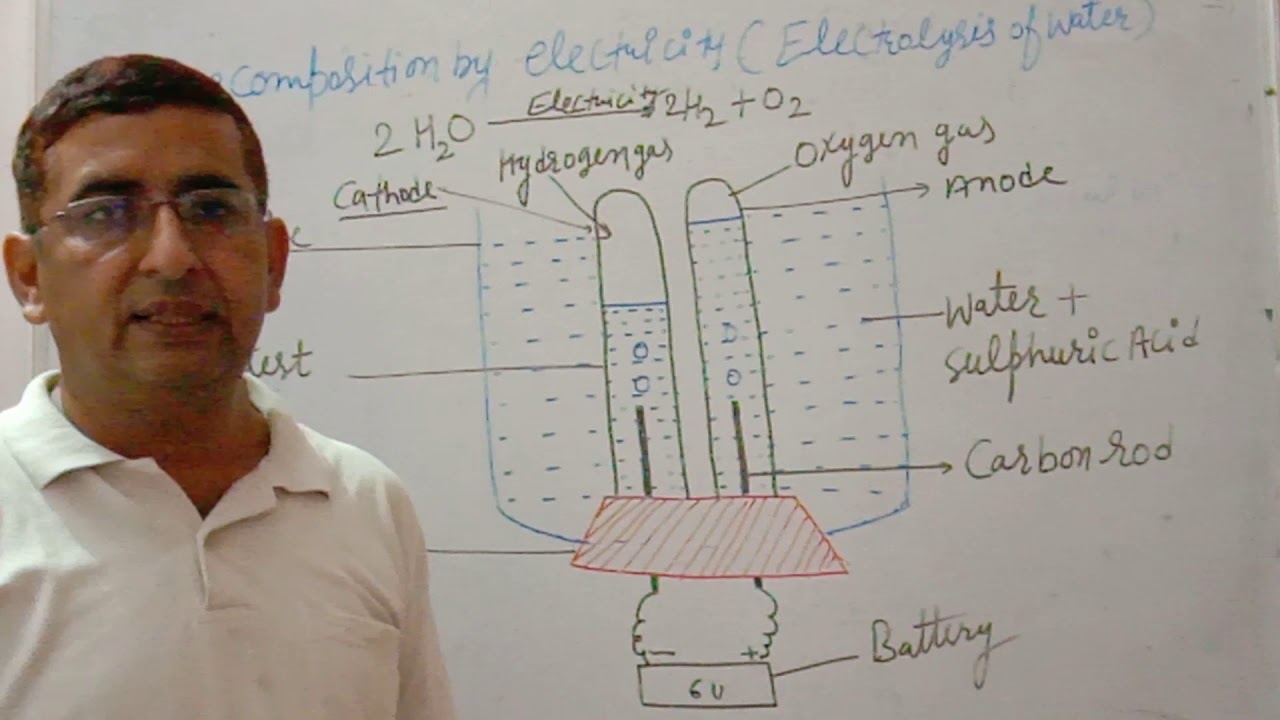 composition by electricity ( Electrolysis of Water )
2 H₂O Electricity 2H₂ + O₂
Hydrogen gas
Oxygen gas
Cathode
Anode
Water +
Sulphuric Acid
est
Carbon rod
Battery
- +
6 V